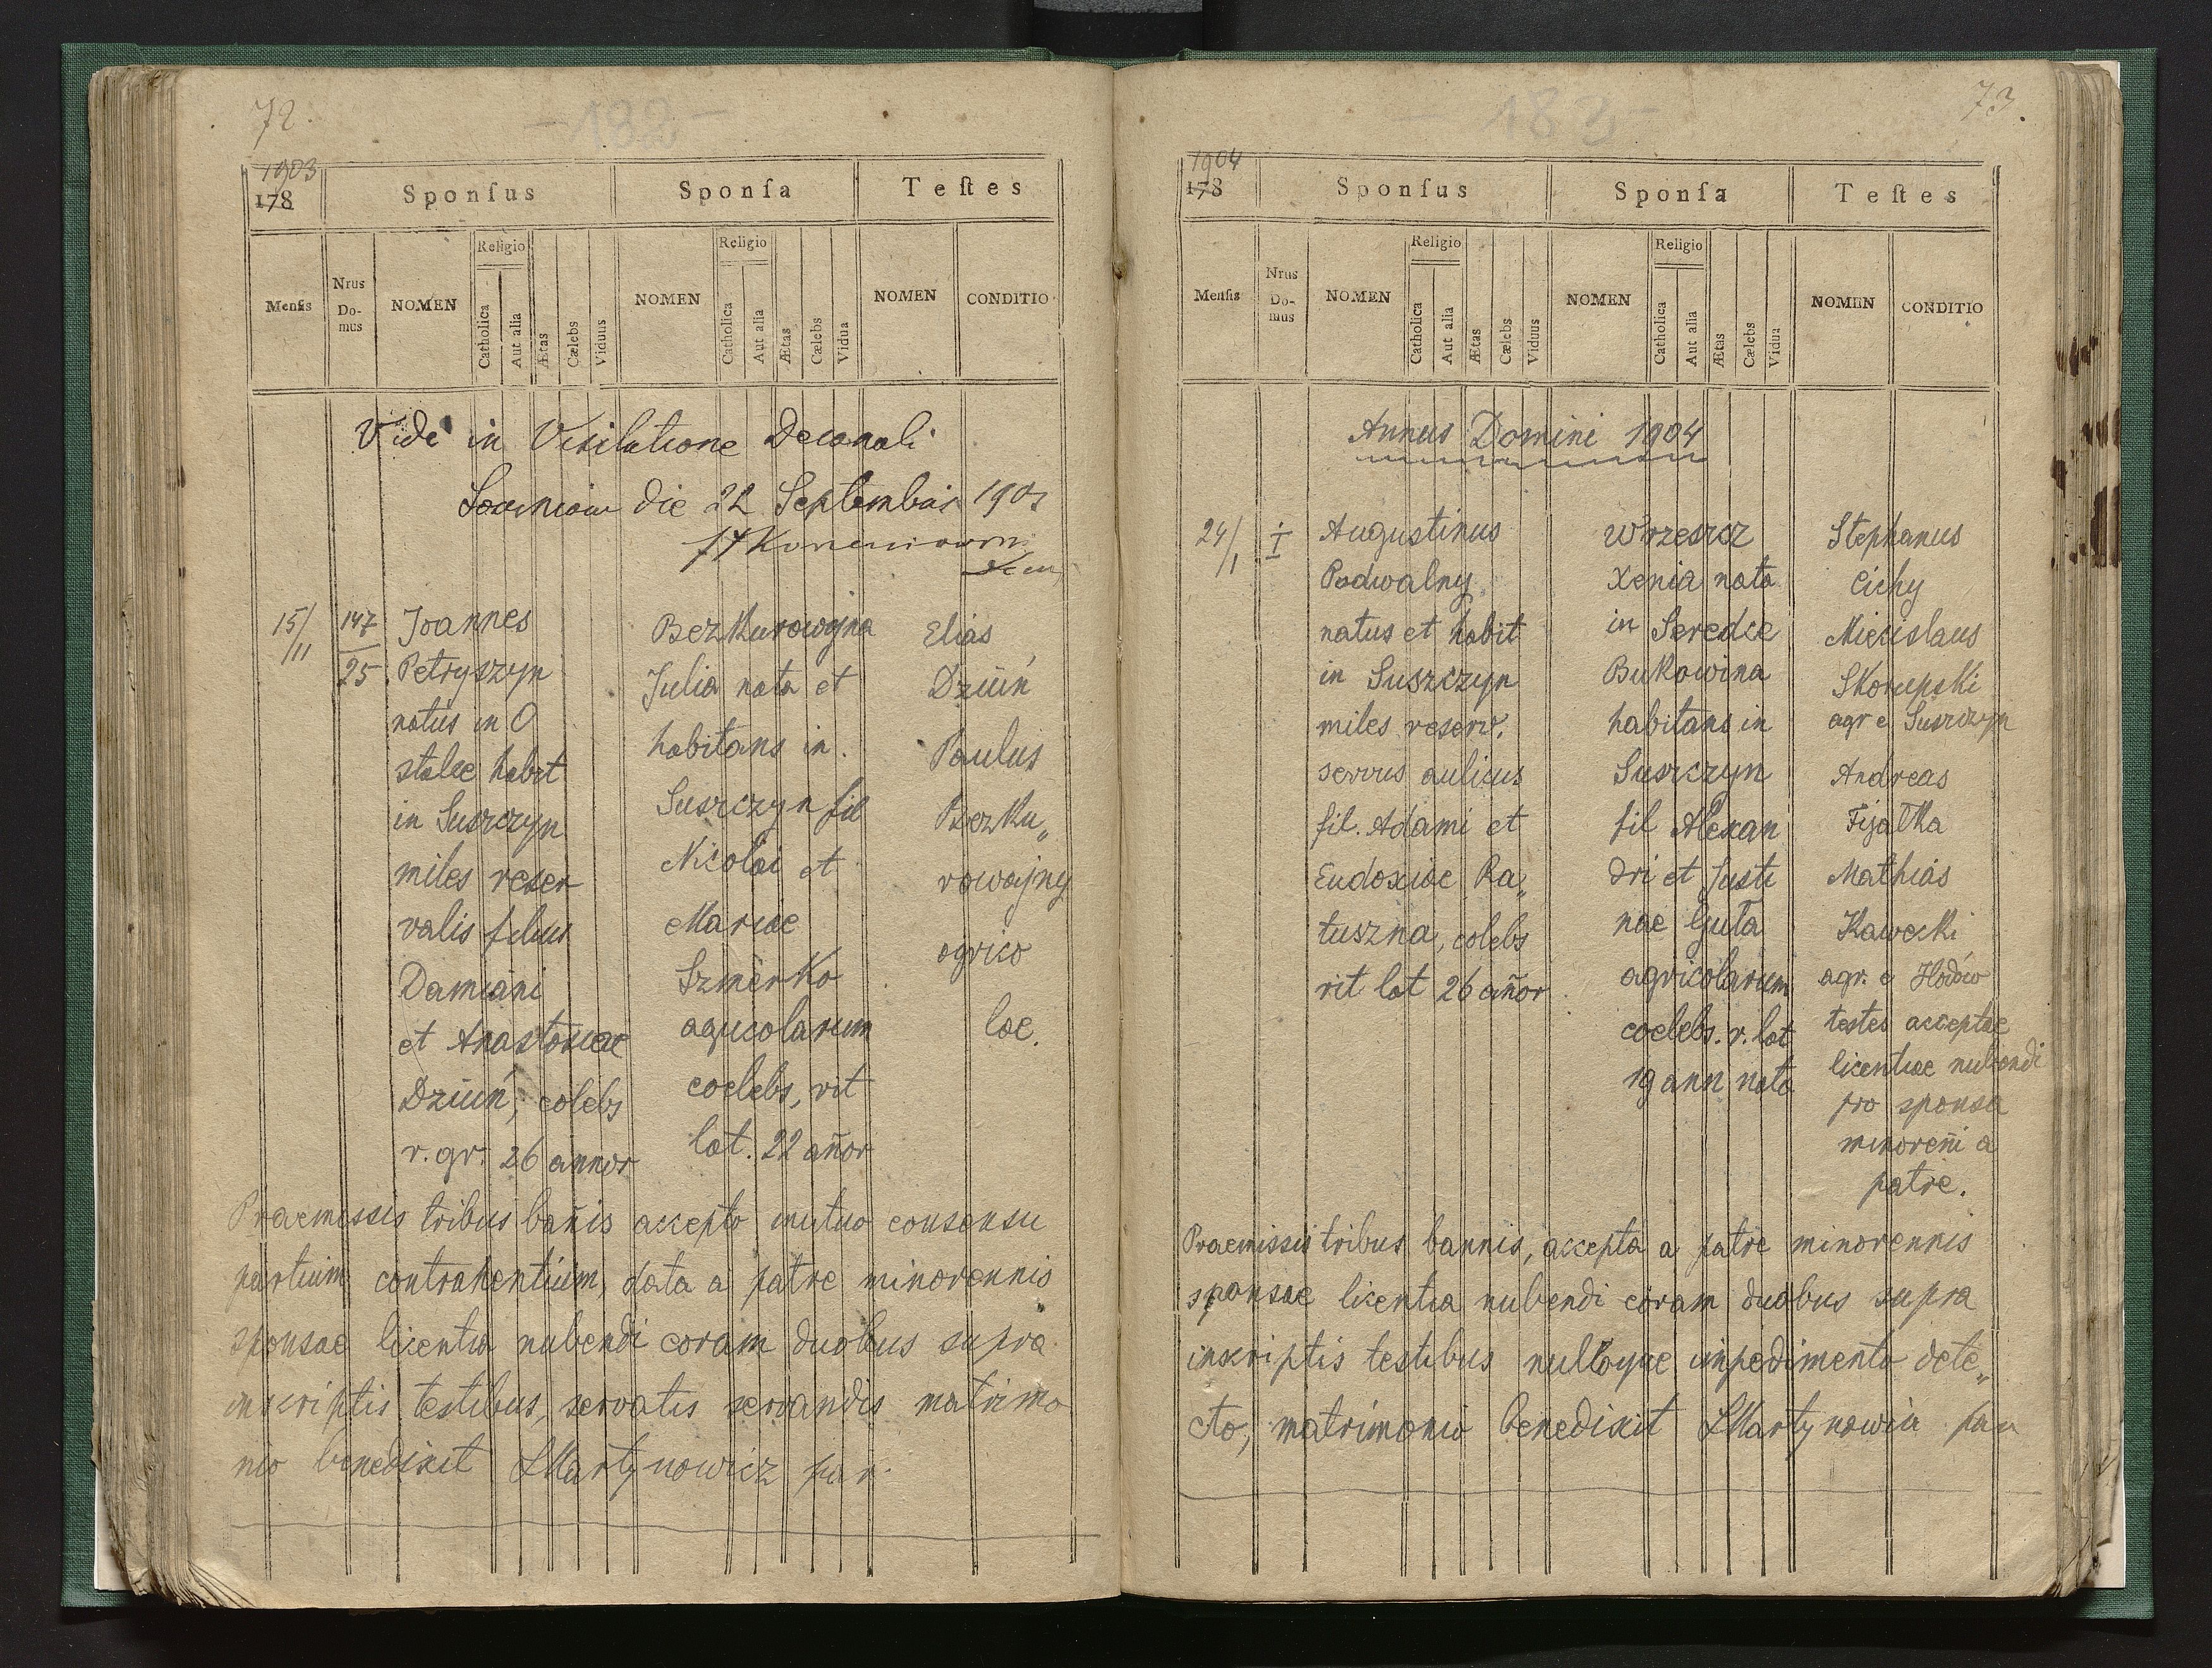 72.
- 182 -
1903
178
Sponſus
Sponſa
Teſtes
Menſis
Nrus Domus
NOMEN
Religio
Catholica
Aut alia
Ætas
Cælebs
Viduus
NOMEN
Religio
Catholica
Aut alia
Ætas
Cælebs
Vidua
NOMEN
CONDITIO
Vidi in Visitatione Decanali
die 22 Septembris 1903
15/11
147
25
Joannes
Petryszyn
natus in O
stalce habit
in Suszczyn
miles reser
valis filius
Damiani
et Anastasiae
Dziuń, colebs
r. gr. 26 annor
Bezkurowajna
Julia nata et
habitans in
Suszczyn fil
Nicolai et
Mariae
Szmerko
agricolarum
coelebs, rit
lat. 22 añor
Elias
Dziuń
Paulus
Bezku„
rowajny
agrico
lae.
Praemissis tribus bañis accepto mutuo consensu
partium contrahentium, data a patre minorennis
sponsae licentia nubendi coram duobus supra
inscriptis testibus, servatis servandis matrimo
nio benedixit LMartynowicz par.
73.
- 183 -
1904
178
Sponſus
Sponſa
Teſtes
Menſis
Nrus Domus
NOMEN
Religio
Catholica
Aut alia
Ætas
Cælebs
Viduus
NOMEN
Religio
Catholica
Aut alia
Ætas
Cælebs
Vidua
NOMEN
CONDITIO
Annus Domini 1904
24/1
Augustinus
Podwalny
natus et habit
in Suszczyn
miles reserv.
servus aulicus
fil. Adami et
Eudoxiae Ra„
tuszna, colebs
rit lat 26 añor
Wrzeszcz
Xenia nata
in Seredce
Bukowina
habitans in
Suszczyn
fil Alexan
dri et Justi
nae Guta
agricolarum
coelebs. r. lat
19 ann nata
Stephanus
Cichy
Miecislaus
Skorupski
agr e Suszczyn
Andreas
Fijałka
Mathias
Kawecki
agr. e Hodów
testes acceptae
licentiae nubendi
pro sponsa
minoreñi a
patre.
Praemissis tribus bannis, accepta a patre minorennis
sponsae licentia nubendi coram duobus supra
inscriptis testibus nulloque impedimento dete„
cto, matrimonio benedixit LMartynowicz par